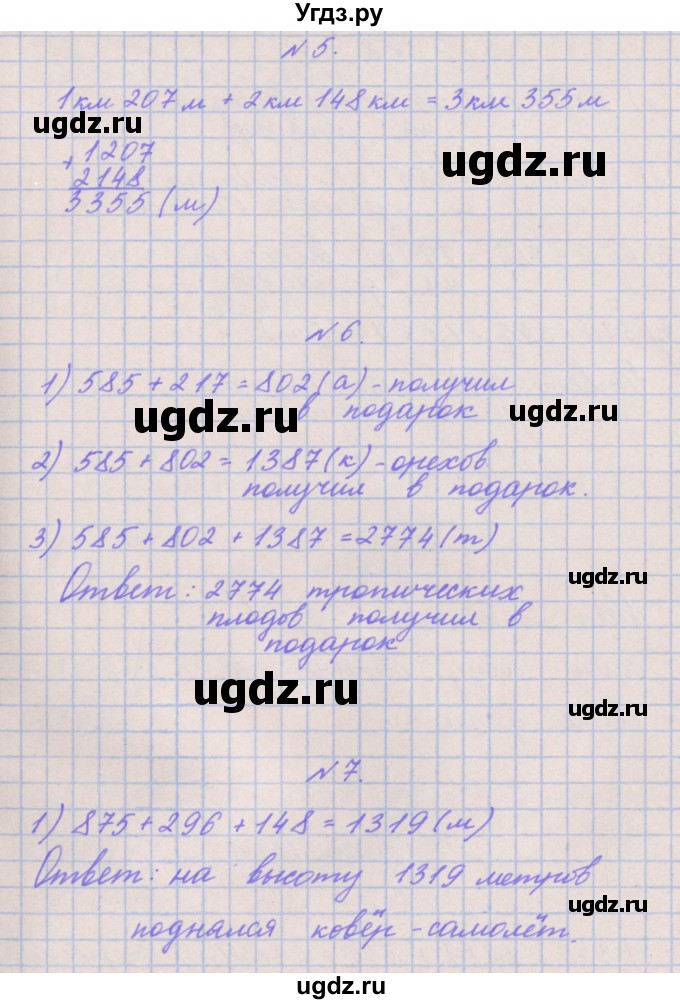 Угдз.ру
N 5.
1км 207м + 2км 148км = 3км 355м
ugdz.ru
ugdz.ru
+ 1207
2148
3355 (м)
N 6.
1) 585 + 217 = 802 (а) - получил
в подарок
ugdz.ru
ugdz.ru
2) 585 + 802 = 1387 (к) - орехов
получил в подарок.
3) 585 + 802 + 1387 = 2774 (т)
ugdz.ru
Ответ: 2774 тропических
плодов получил в
подарок
ugdz.ru
ugdz.ru
N 7.
1) 875 + 296 + 148 = 1319 (м)
Ответ: на высоту 1319 метров
поднялся ковёр - самолёт.
ugdz.ru
ugdz.ru